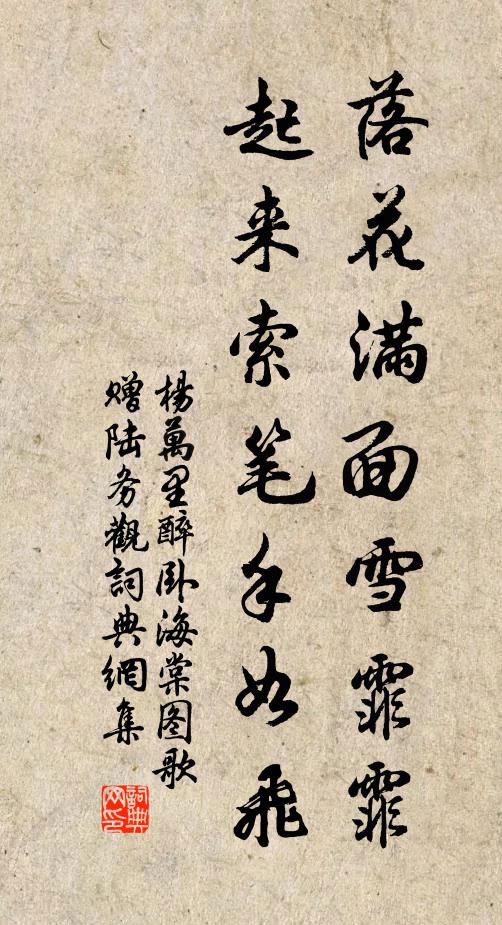 落花满面雪霏霏
起来索笔手如飞
楊萬里醉卧海棠图歌
赠陆务觀詞典網集
詞典网印